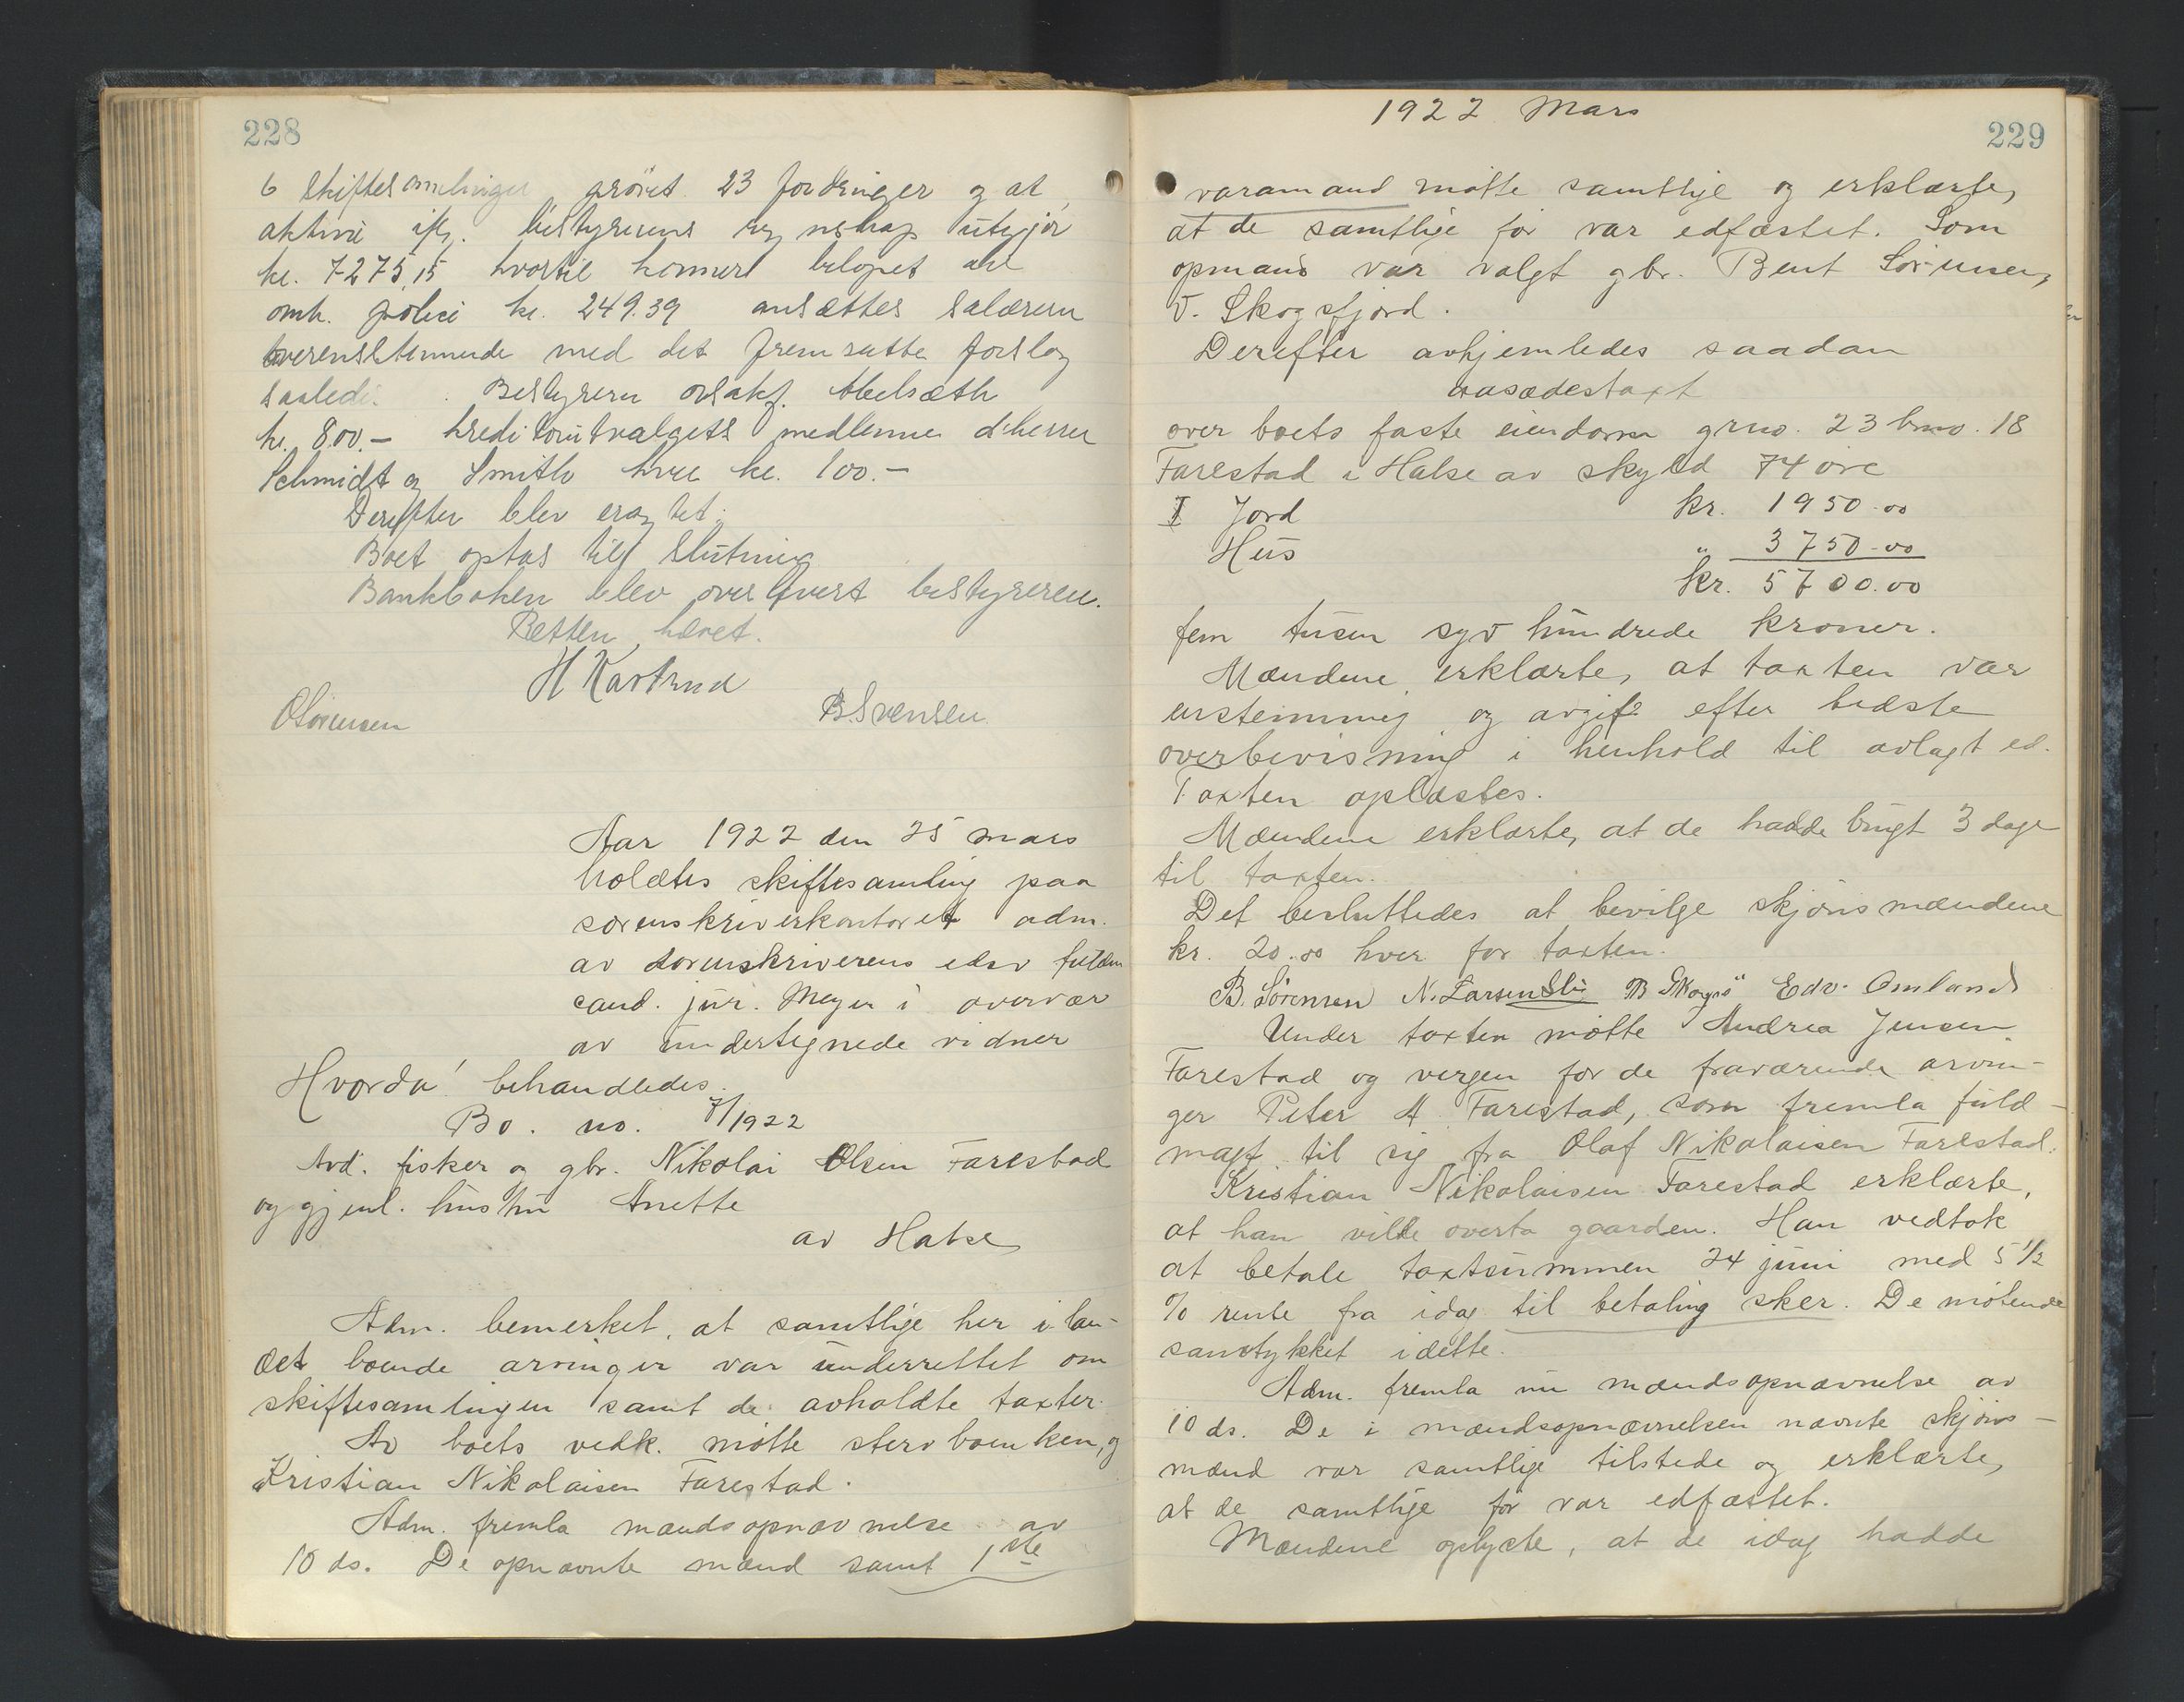 228
6 skiftesamlinger prövet 23 fordringer og at
aktiva ifg. bestyrerens regnskap utgjör
kr. 7275,15 hvortil kommer belöpet
omh. police kr. 249.39 ansættes salærene
overensstemmende med det fremsatte forslag
saaledes. Bestyreren osakf.
kr. 800.- kreditorutvalgets medlemmer d'herrer
Schmidt og Smith hver kr. 100.-
Derefter blev eragtet:
Boet optas til slutning
Bankboken blev overlevert bestyreren.
Retten hævet.
H Kartrud
O Sörensen B Svensen
Aar 1922 den 25 mars
holdtes skiftesamling paa
sorenskriverkontoret adm.
av sorenskriverens edsv fuldm
cand. jur. Meyer i overvær
av undertegnede vidner
Hvorda! behandledes.
Bo. no. 7/1922
Avd. fisker og gbr. Nikolai Olsen Farestad
og gjenl. hustru Anette
av Halse
Adm. bemerket, at samtlige her i lan-
det boende arvinger var underrettet om
skiftesamlingen samt de avholdte taxter.
Av boets vedk. mötte stervboenken, og
Kristian Nikolaisen Farestad.
Adm. fremla mændsopnævnelse av
10 ds. De opnævnte mænd samt 1ste
1922 Mars
229
varamand mötte samtlige og erklærte,
at de samtlige för var edfæstet. Som
opmand var valgt gbr. Bent Sörensen,
V. Skogsfjord.
Derefter avhjemledes saadan
aasædestaxt
over boets faste eiendom grno. 23 brno. 18
Farestad i Halse av skyld 74 öre
I Jord kr. 1950.00
Hus " 3750-00
kr. 5700.00
fem tusen syv hundrede kroner.
Mændene erklærte, at taxten var
enstemmig og avgit efter bedste
overbevisning i henhold til avlagt ed.
Taxten oplæstes.
Mændene erklærte, at de hadde brugt 3 dage
til taxten.
Det besluttedes at bevilge skjönsmændene
kr. 20.00 hver for taxten.
B. Sörensen N. Larsen B Skogsö Edv. Omland
Under taxten mötte Andrea Jensen
Farestad og vergen for de fraværende arvin-
ger Peter A Farestad, som fremla fuld-
magt til sig fra Olaf Nikolaisen Farestad.
Kristian Nikolaisen Farestad erklærte,
at han vilde overta gaarden. Han vedtok
at betale taxtsummen 24 juni med 5 1/2
% rente fra idag til betaling sker. De mötende
samtykket i dette.
Adm. fremla nu mændsopnævnelse av
10 ds. De i mændsopnævnelsen nævnte skjöns-
mænd var samtlige tilstede og erklærte,
at de samtlige för var edfæstet.
Mændene oplyste, at de idag hadde